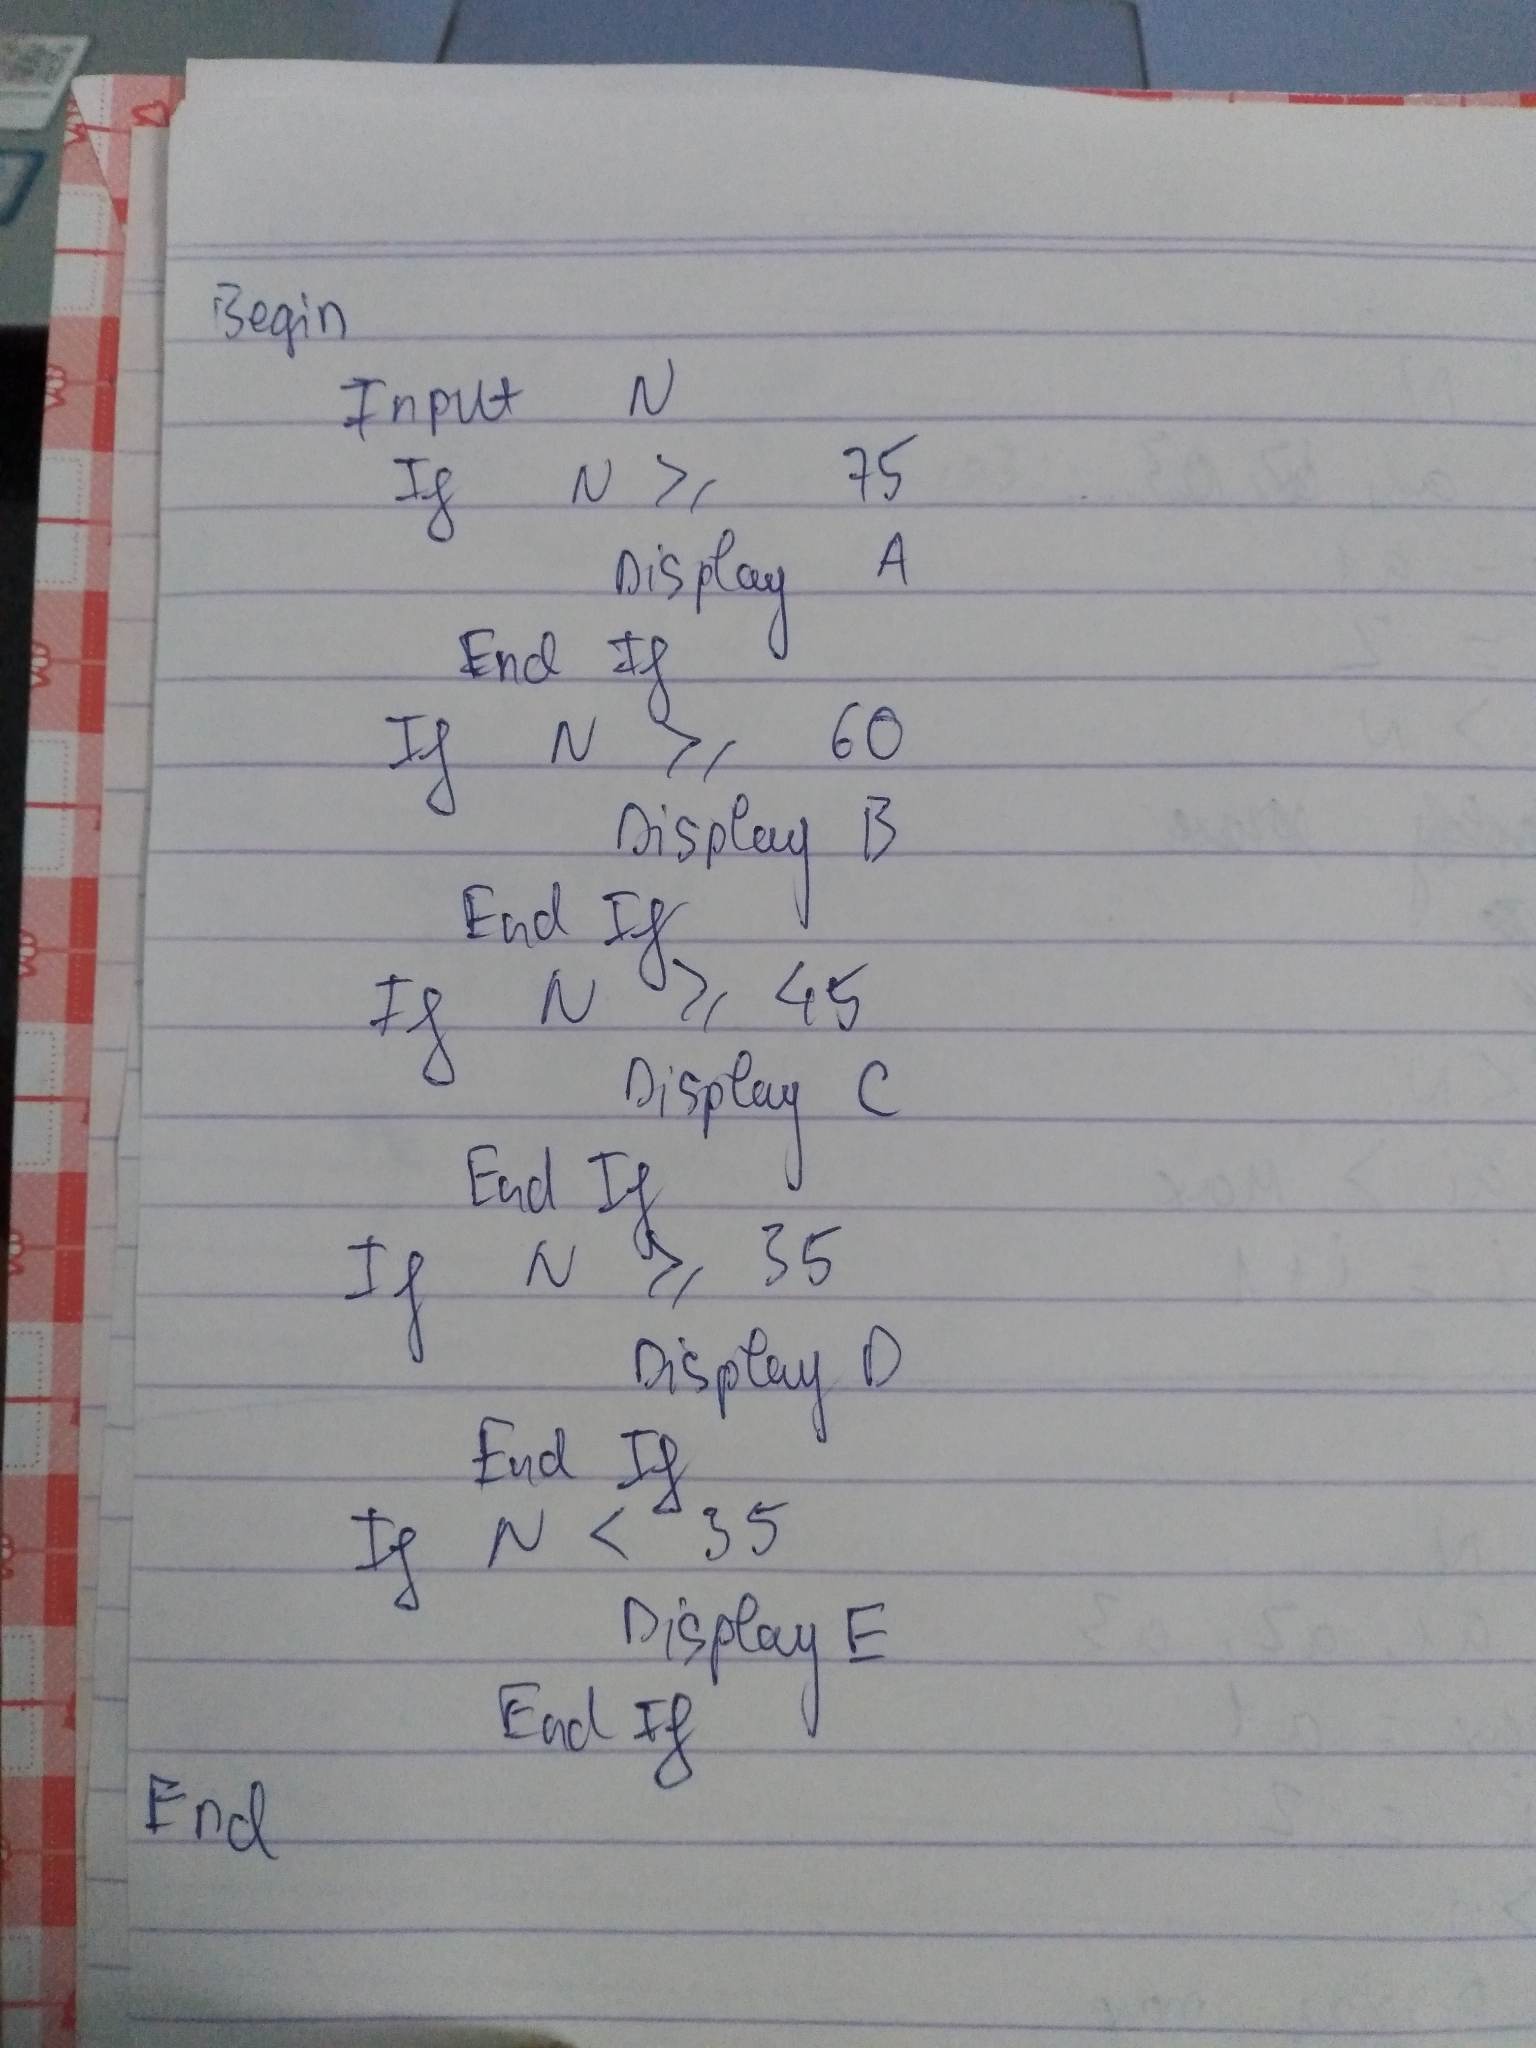 Begin
Input N
If N ⩾ 75
Display A
End If
If N ⩾ 60
Display B
End If
If N ⩾ 45
Display C
End If
If N ⩾ 35
Display D
End If
If N < 35
Display E
End If
End